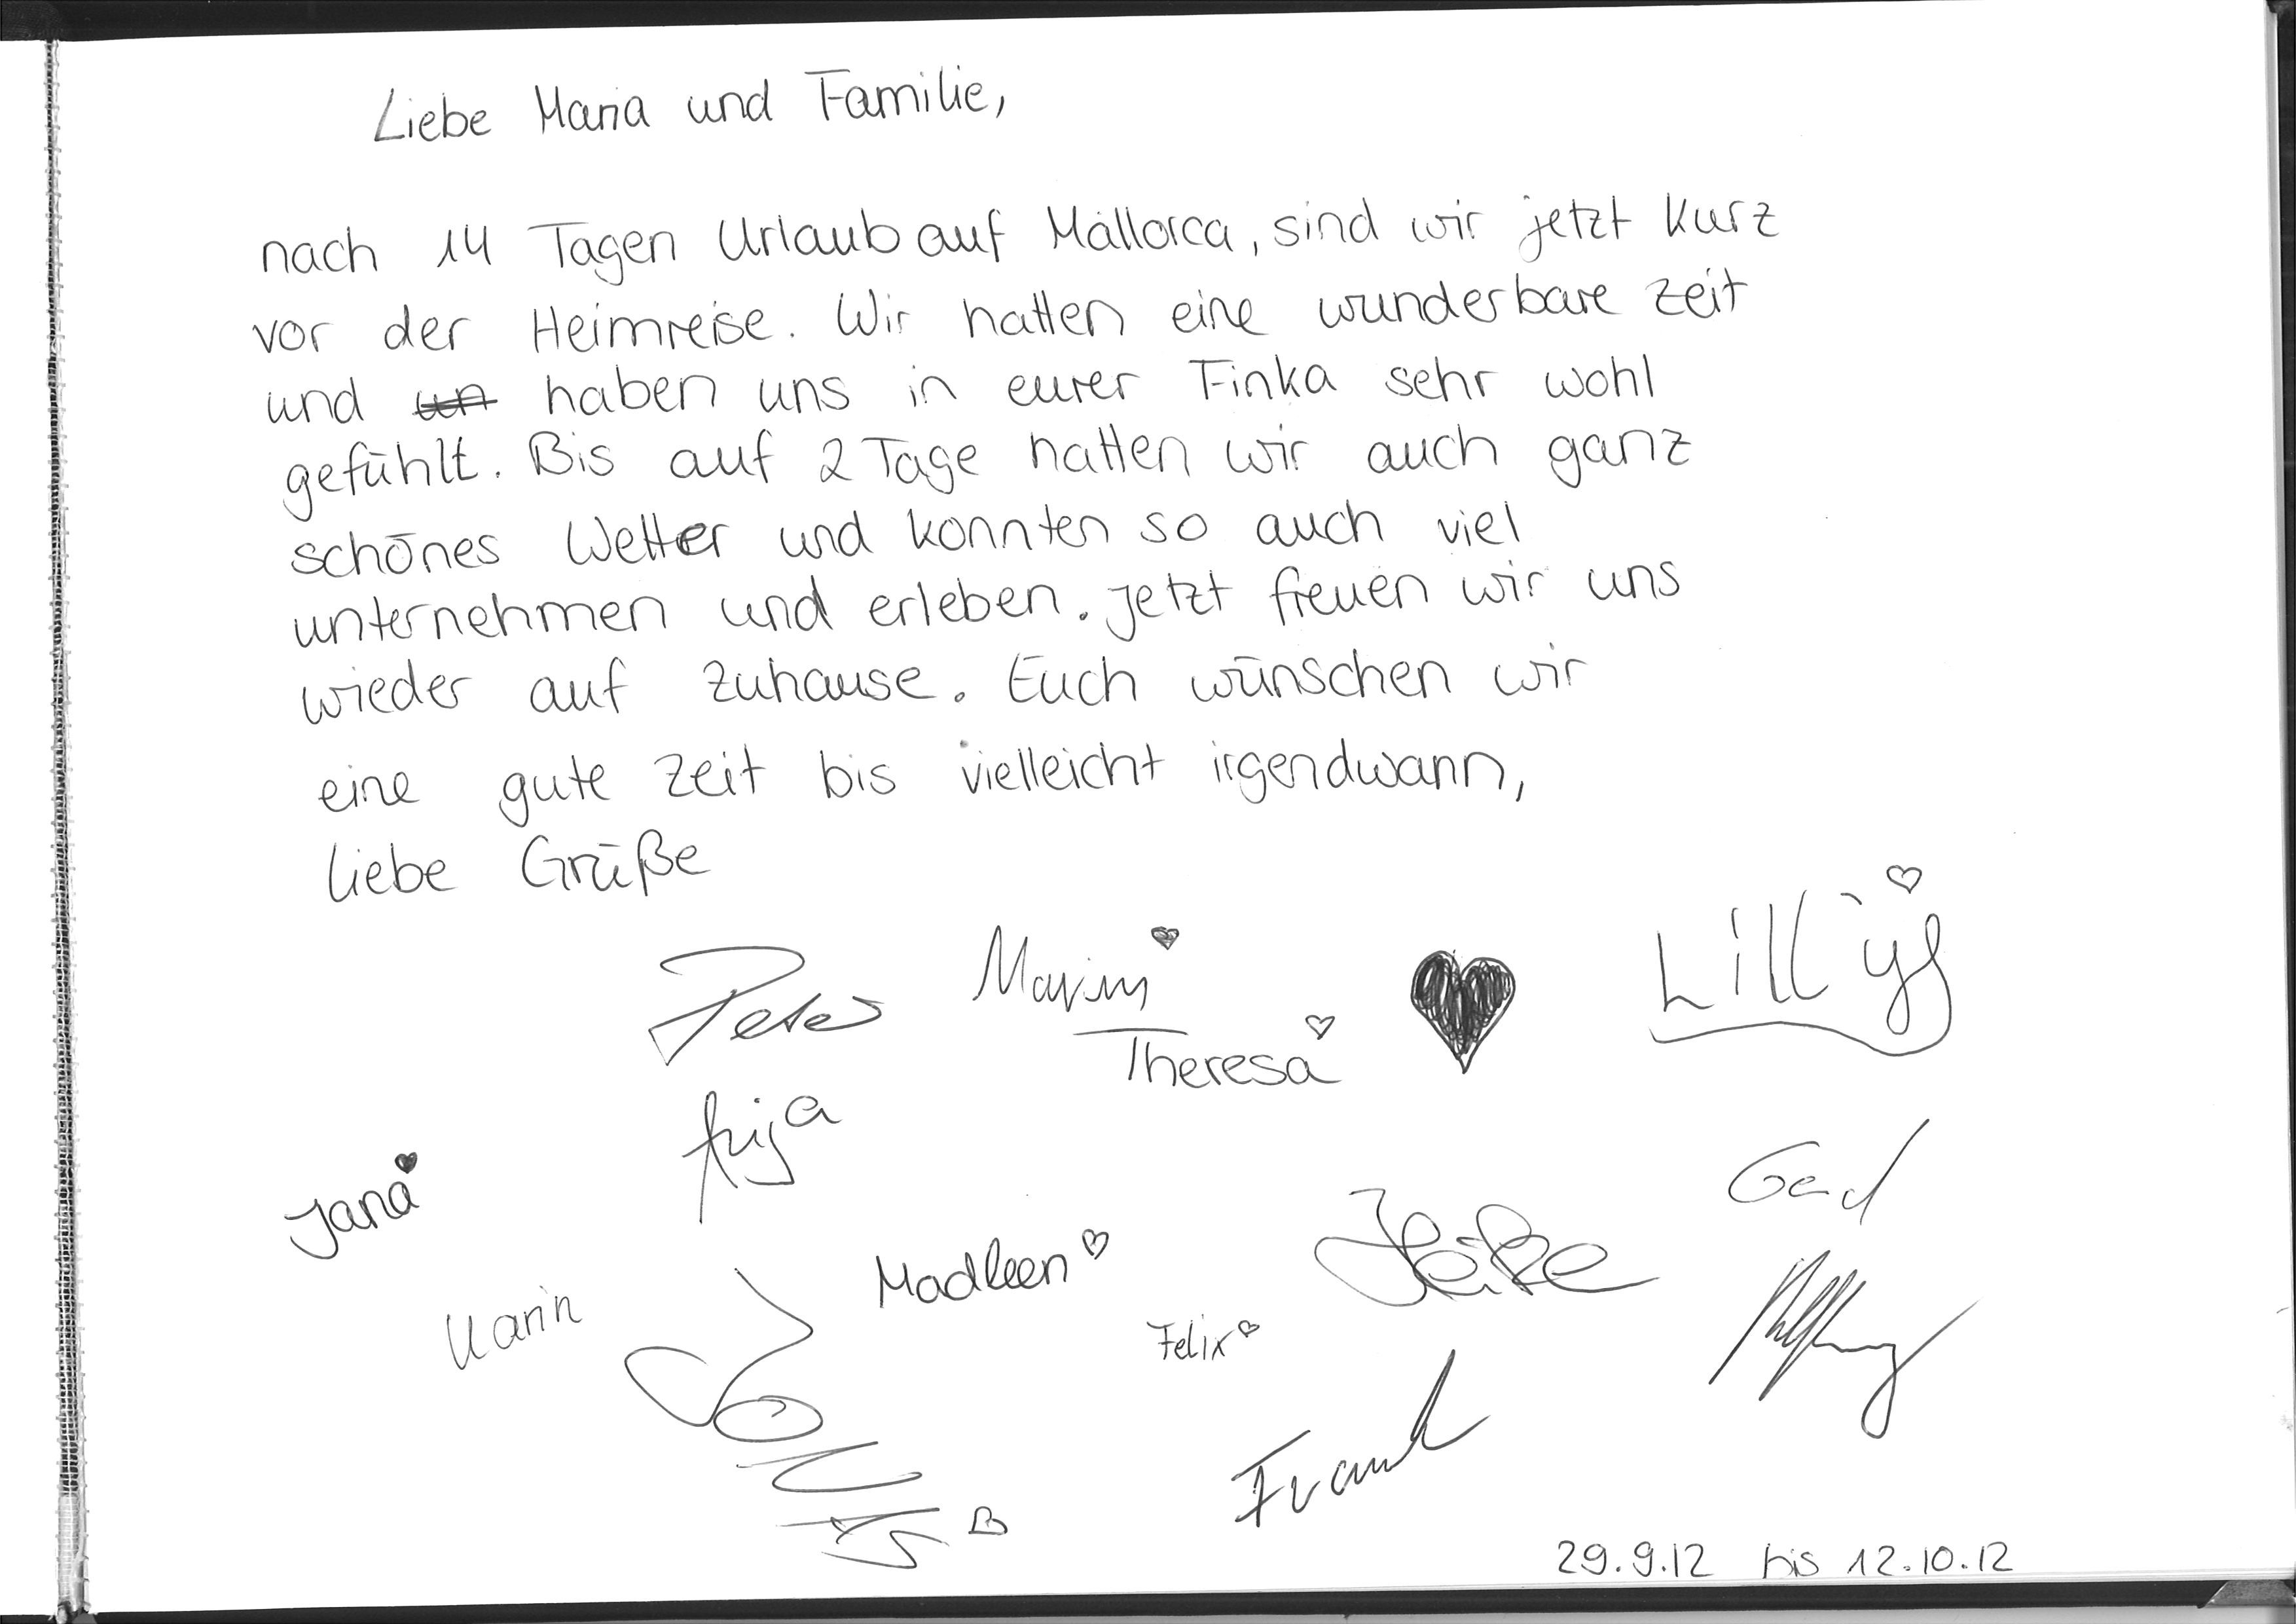 Liebe Maria und Familie,
nach 14 Tagen Urlaub auf Mallorca, sind wir jetzt kurz
vor der Heimreise. Wir hatten eine wunderbare Zeit
und un haben uns in eurer Finka sehr wohl
gefühlt. Bis auf 2 Tage hatten wir auch ganz
schönes Wetter und konnten so auch viel
unternehmen und erleben. Jetzt freuen wir uns
wieder auf Zuhause. Euch wünschen wir
eine gute Zeit bis vielleicht irgendwann,
liebe Grüße
Peter
Theresa
Lilly
Jana
Karin
Madleen
Heike
Gerd
Felix
Frank
29.9.12 bis 12.10.12